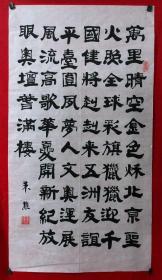 萬里晴空金色秋北京聖
火照全球彩旗獵獵迎千
國健將赳赳来五洲友誼
平臺圓夙夢人文奥運展
風流高歌華夏開新紀放
眼奥壇譽滿樓